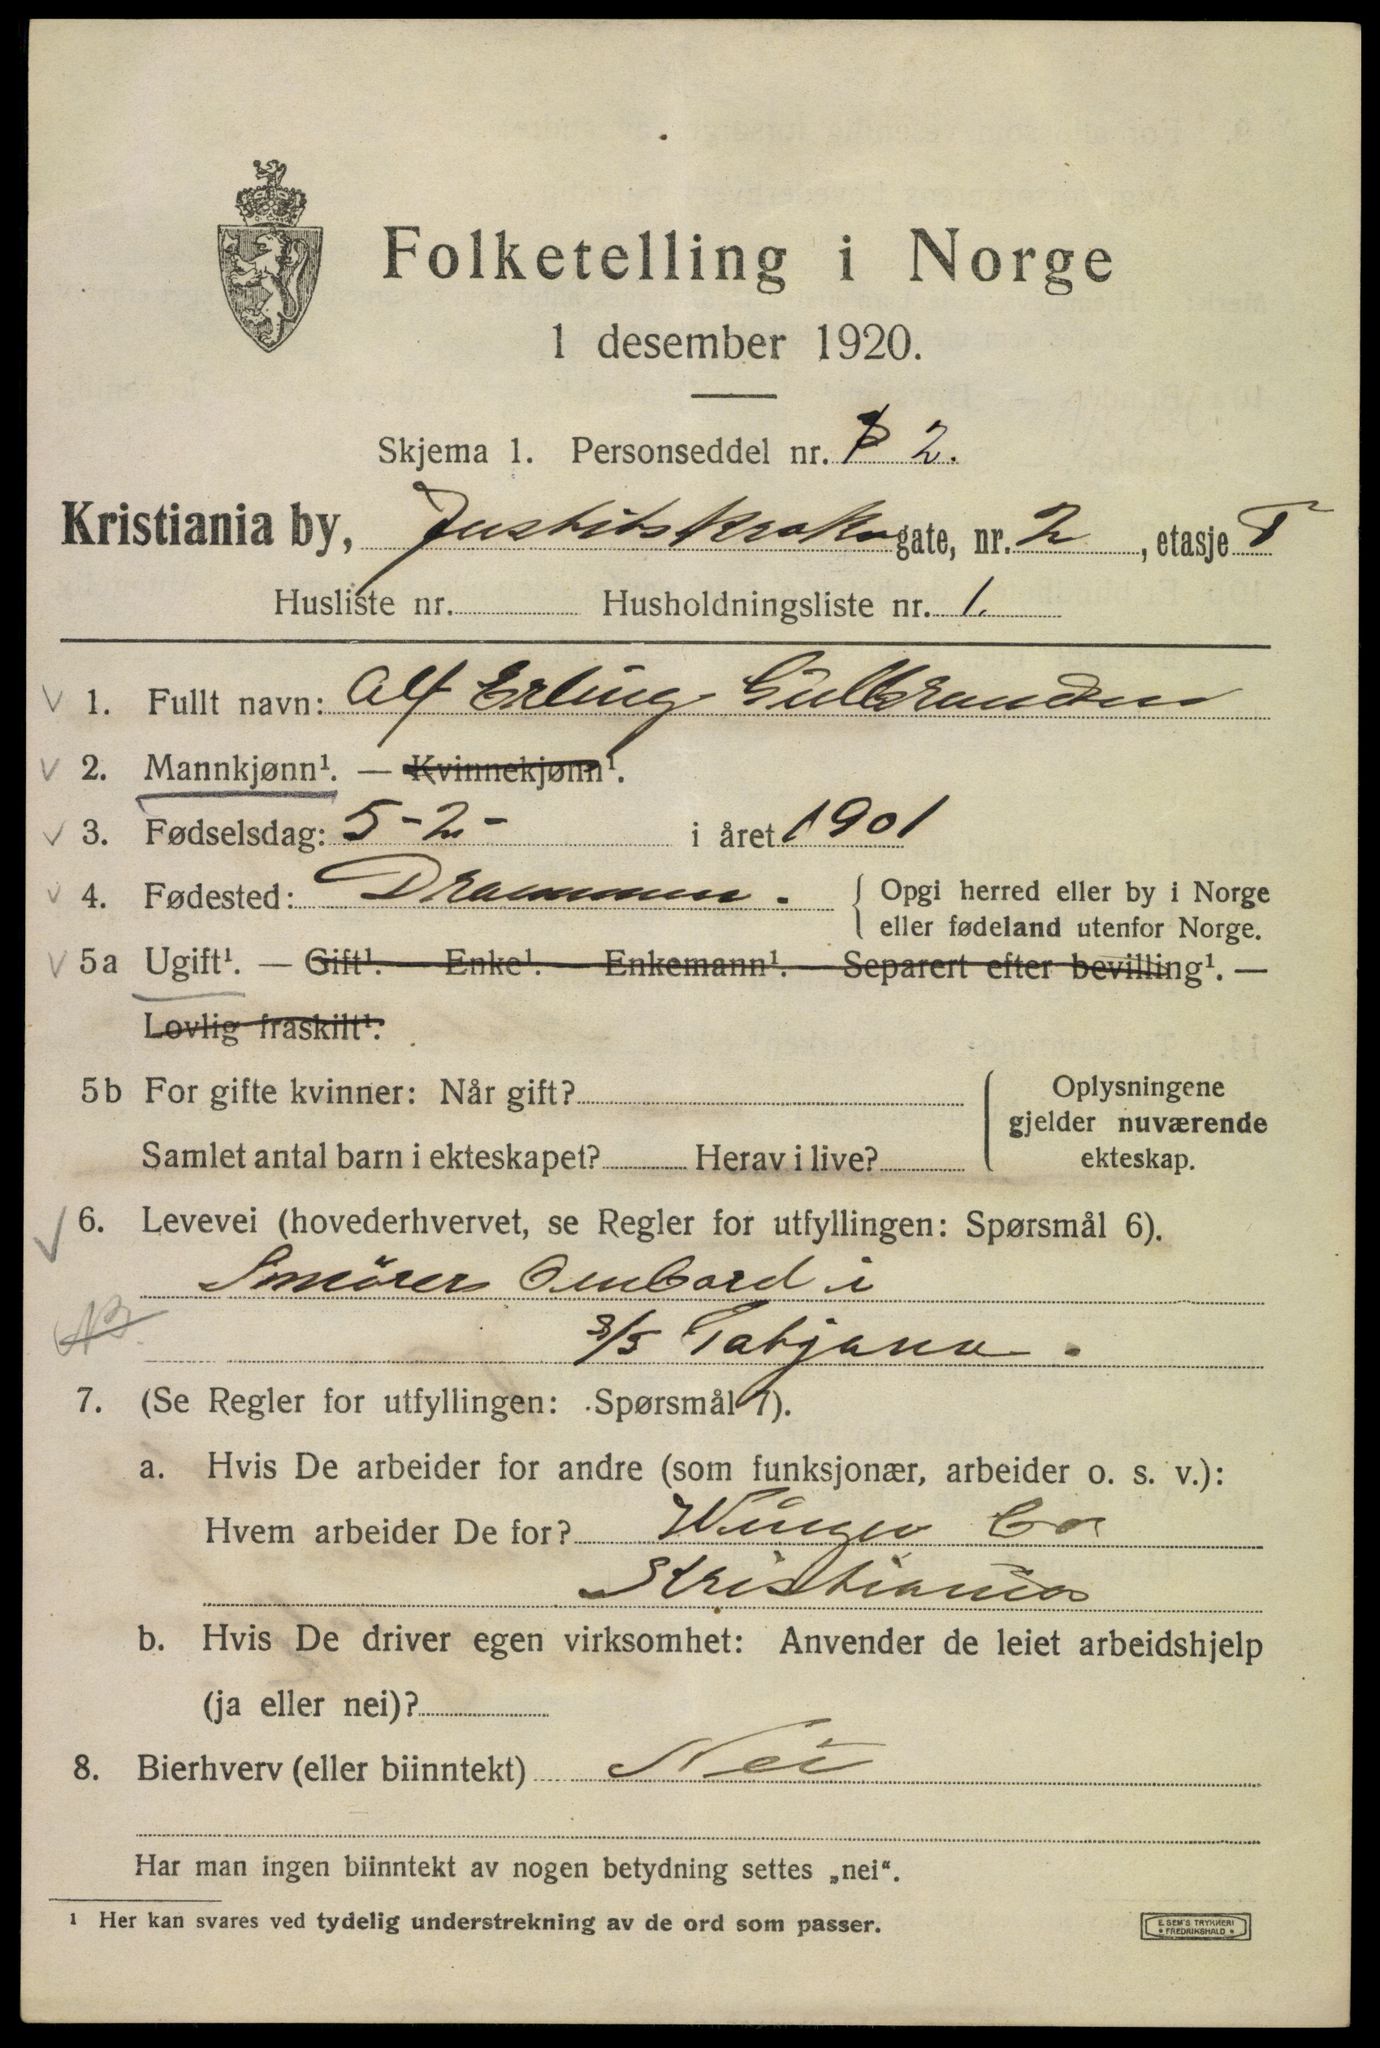 Folketelling i Norge
1 desember 1920.
Skjema 1. Personseddel nr. 2.
Kristiania by, Justitskroken gate, nr. 2, etasje
Husliste nr. Husholdningsliste nr. 1.
1. Fullt navn: Alf Erling Gulbrandsen
2. Mannkjønn¹. — Kvinnekjønn¹.
3. Fødselsdag: 5-2- i året 1901
4. Fødested: Drammen. Opgi herred eller by i Norge
eller fødeland utenfor Norge.
5a Ugift¹. — Gift¹. — Enke¹. — Enkemann¹. — Separert efter bevilling¹. —
Lovlig fraskilt¹.
5b For gifte kvinner: Når gift? Oplysningene
gjelder nuværende
Samlet antal barn i ekteskapet? Herav i live? ekteskap.
6. Levevei (hovederhvervet, se Regler for utfyllingen: Spørsmål 6).
Smører Ombord i
NB
S/S Tatjana.
7. (Se Regler for utfyllingen: Spørsmål 7).
a. Hvis De arbeider for andre (som funksjonær, arbeider o. s. v.):
Hvem arbeider De for? Winge & Co
Kristiania
b. Hvis De driver egen virksomhet: Anvender de leiet arbeidshjelp
(ja eller nei)?
8. Bierhverv (eller biinntekt) Nei
Har man ingen biinntekt av nogen betydning settes „nei“.
¹ Her kan svares ved tydelig understrekning av de ord som passer.
E. SEM'S TRYKKERI
FREDRIKSHALD